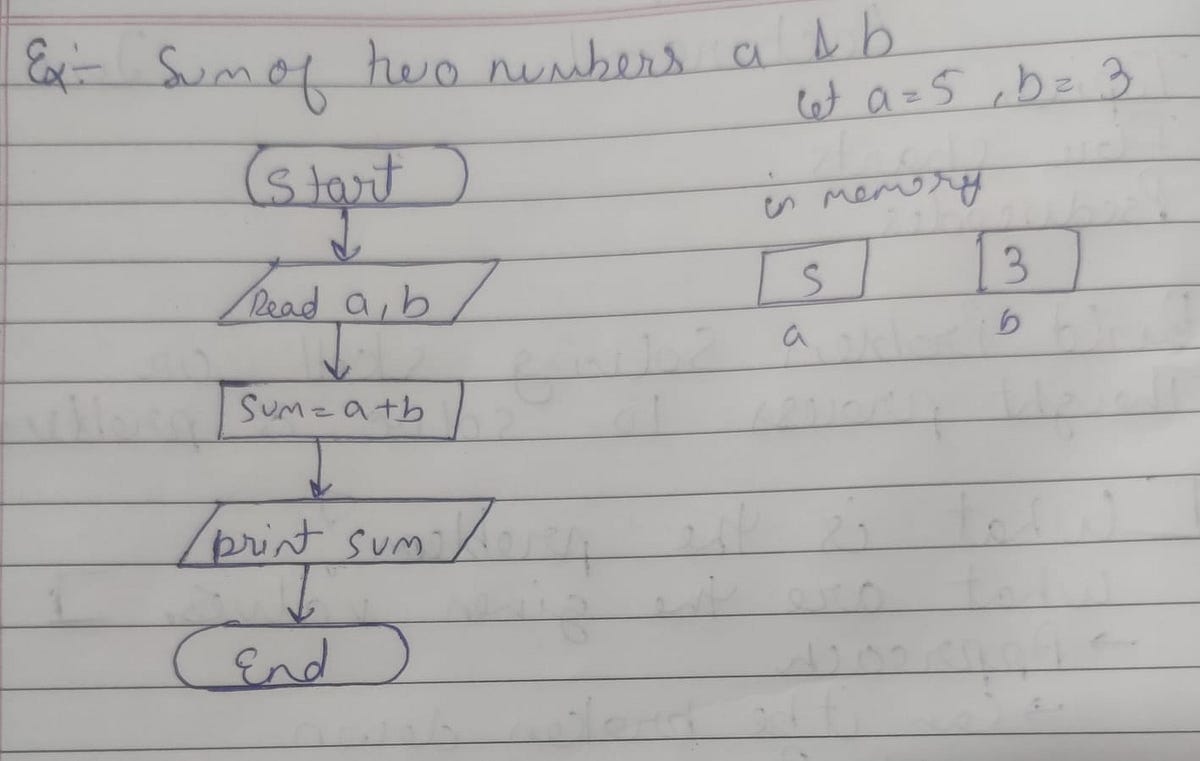 Ex:- Sum of two numbers a & b
let a=5, b=3
Start
in memory
Read a,b
5 3
a b
Sum=a+b
print sum
End